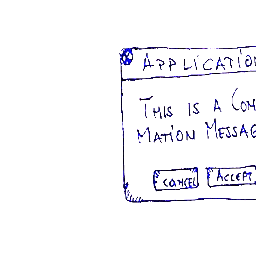 APPLICATION
THIS IS A CON
MATION MESSAG
CANCEL ACCEPT